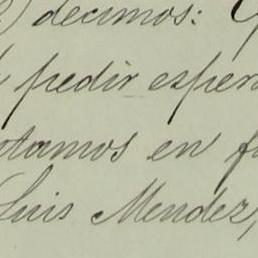 decimos:
pedir esper
otamos en f
Luis Mendez,